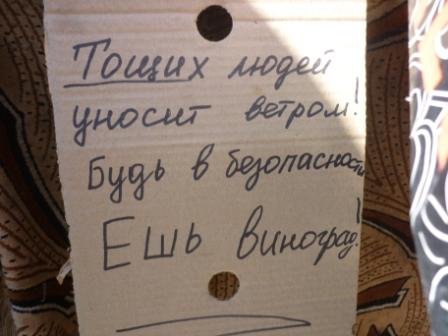 Тощих людей
уносит ветром!
Будь в безопасности
Ешь виноград!